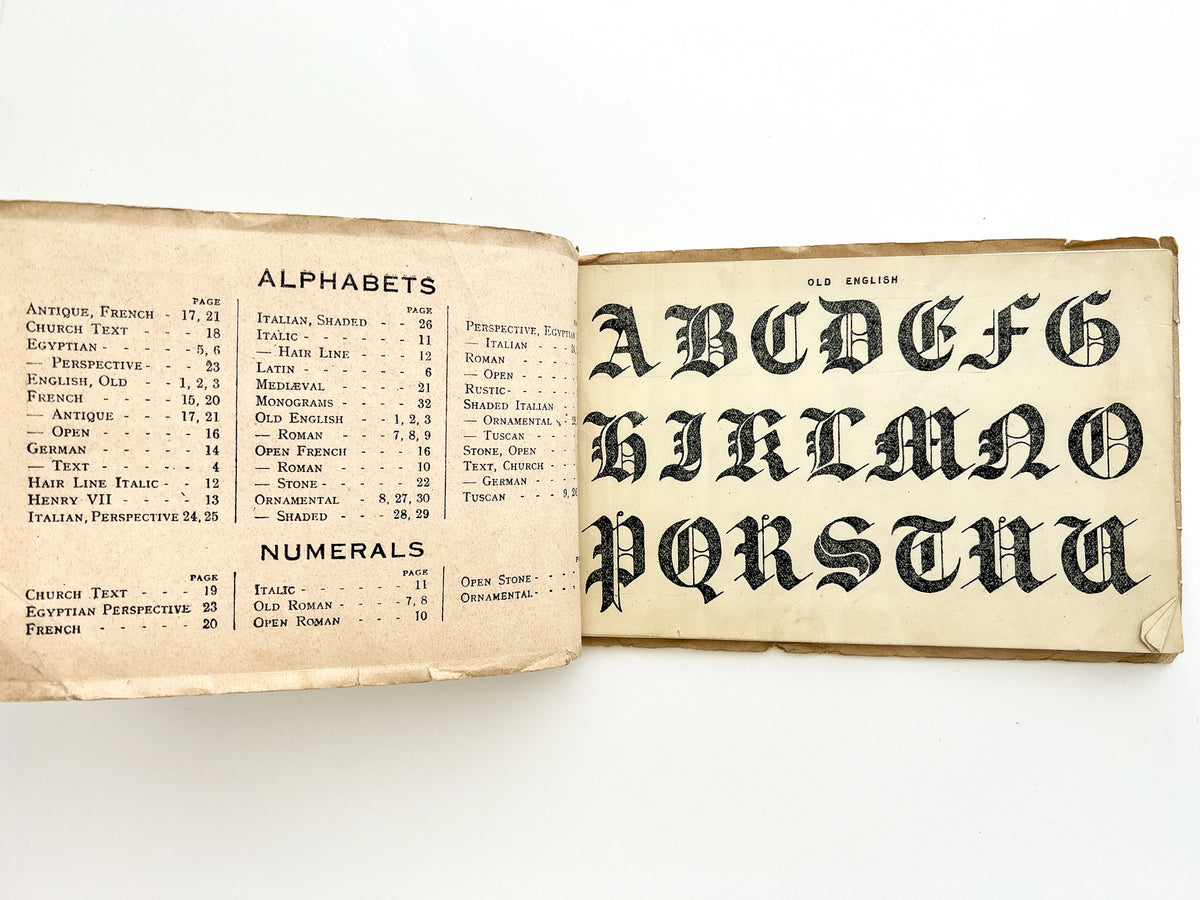 ALPHABETS
PAGE
ANTIQUE, FRENCH - 17, 21
CHURCH TEXT - - - 18
EGYPTIAN - - - - 5, 6
— PERSPECTIVE - - 23
ENGLISH, OLD - - 1, 2, 3
FRENCH - - - 15, 20
— ANTIQUE - - 17, 21
— OPEN - - - - 16
GERMAN - - - - 14
— TEXT - - - - 4
HAIR LINE ITALIC - - 12
HENRY VII - - - - 13
ITALIAN, PERSPECTIVE 24, 25
PAGE
ITALIAN, SHADED - - 26
ITALIC - - - - - 11
— HAIR LINE - - - 12
LATIN - - - - - 6
MEDIÆVAL - - - 21
MONOGRAMS - - - 32
OLD ENGLISH - - 1, 2, 3
— ROMAN - - - 7, 8, 9
OPEN FRENCH - - - 16
— ROMAN - - - - 10
— STONE - - - - 22
ORNAMENTAL - 8, 27, 30
— SHADED - - - 28, 29
PERSPECTIVE, EGYPTIAN
— ITALIAN - -
ROMAN - - -
— OPEN - - -
RUSTIC - - - -
SHADED ITALIAN - -
— ORNAMENTAL -
— TUSCAN - - -
STONE, OPEN - - -
TEXT, CHURCH - - -
— GERMAN - - -
TUSCAN - - - 9,
NUMERALS
PAGE
CHURCH TEXT - - - 19
EGYPTIAN PERSPECTIVE 23
FRENCH - - - - - 20
PAGE
ITALIC - - - - - 11
OLD ROMAN - - - - 7, 8
OPEN ROMAN - - - 10
OPEN STONE - - -
ORNAMENTAL - - -
OLD ENGLISH
A B C D E F G
H I K L M N O
P Q R S T U V